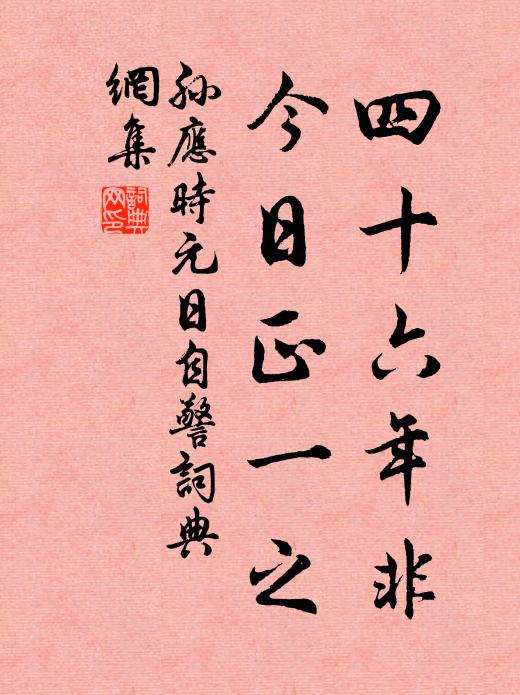 四十六年非
今日正一之
孫應時元日自警詞典
網集
詞典網印